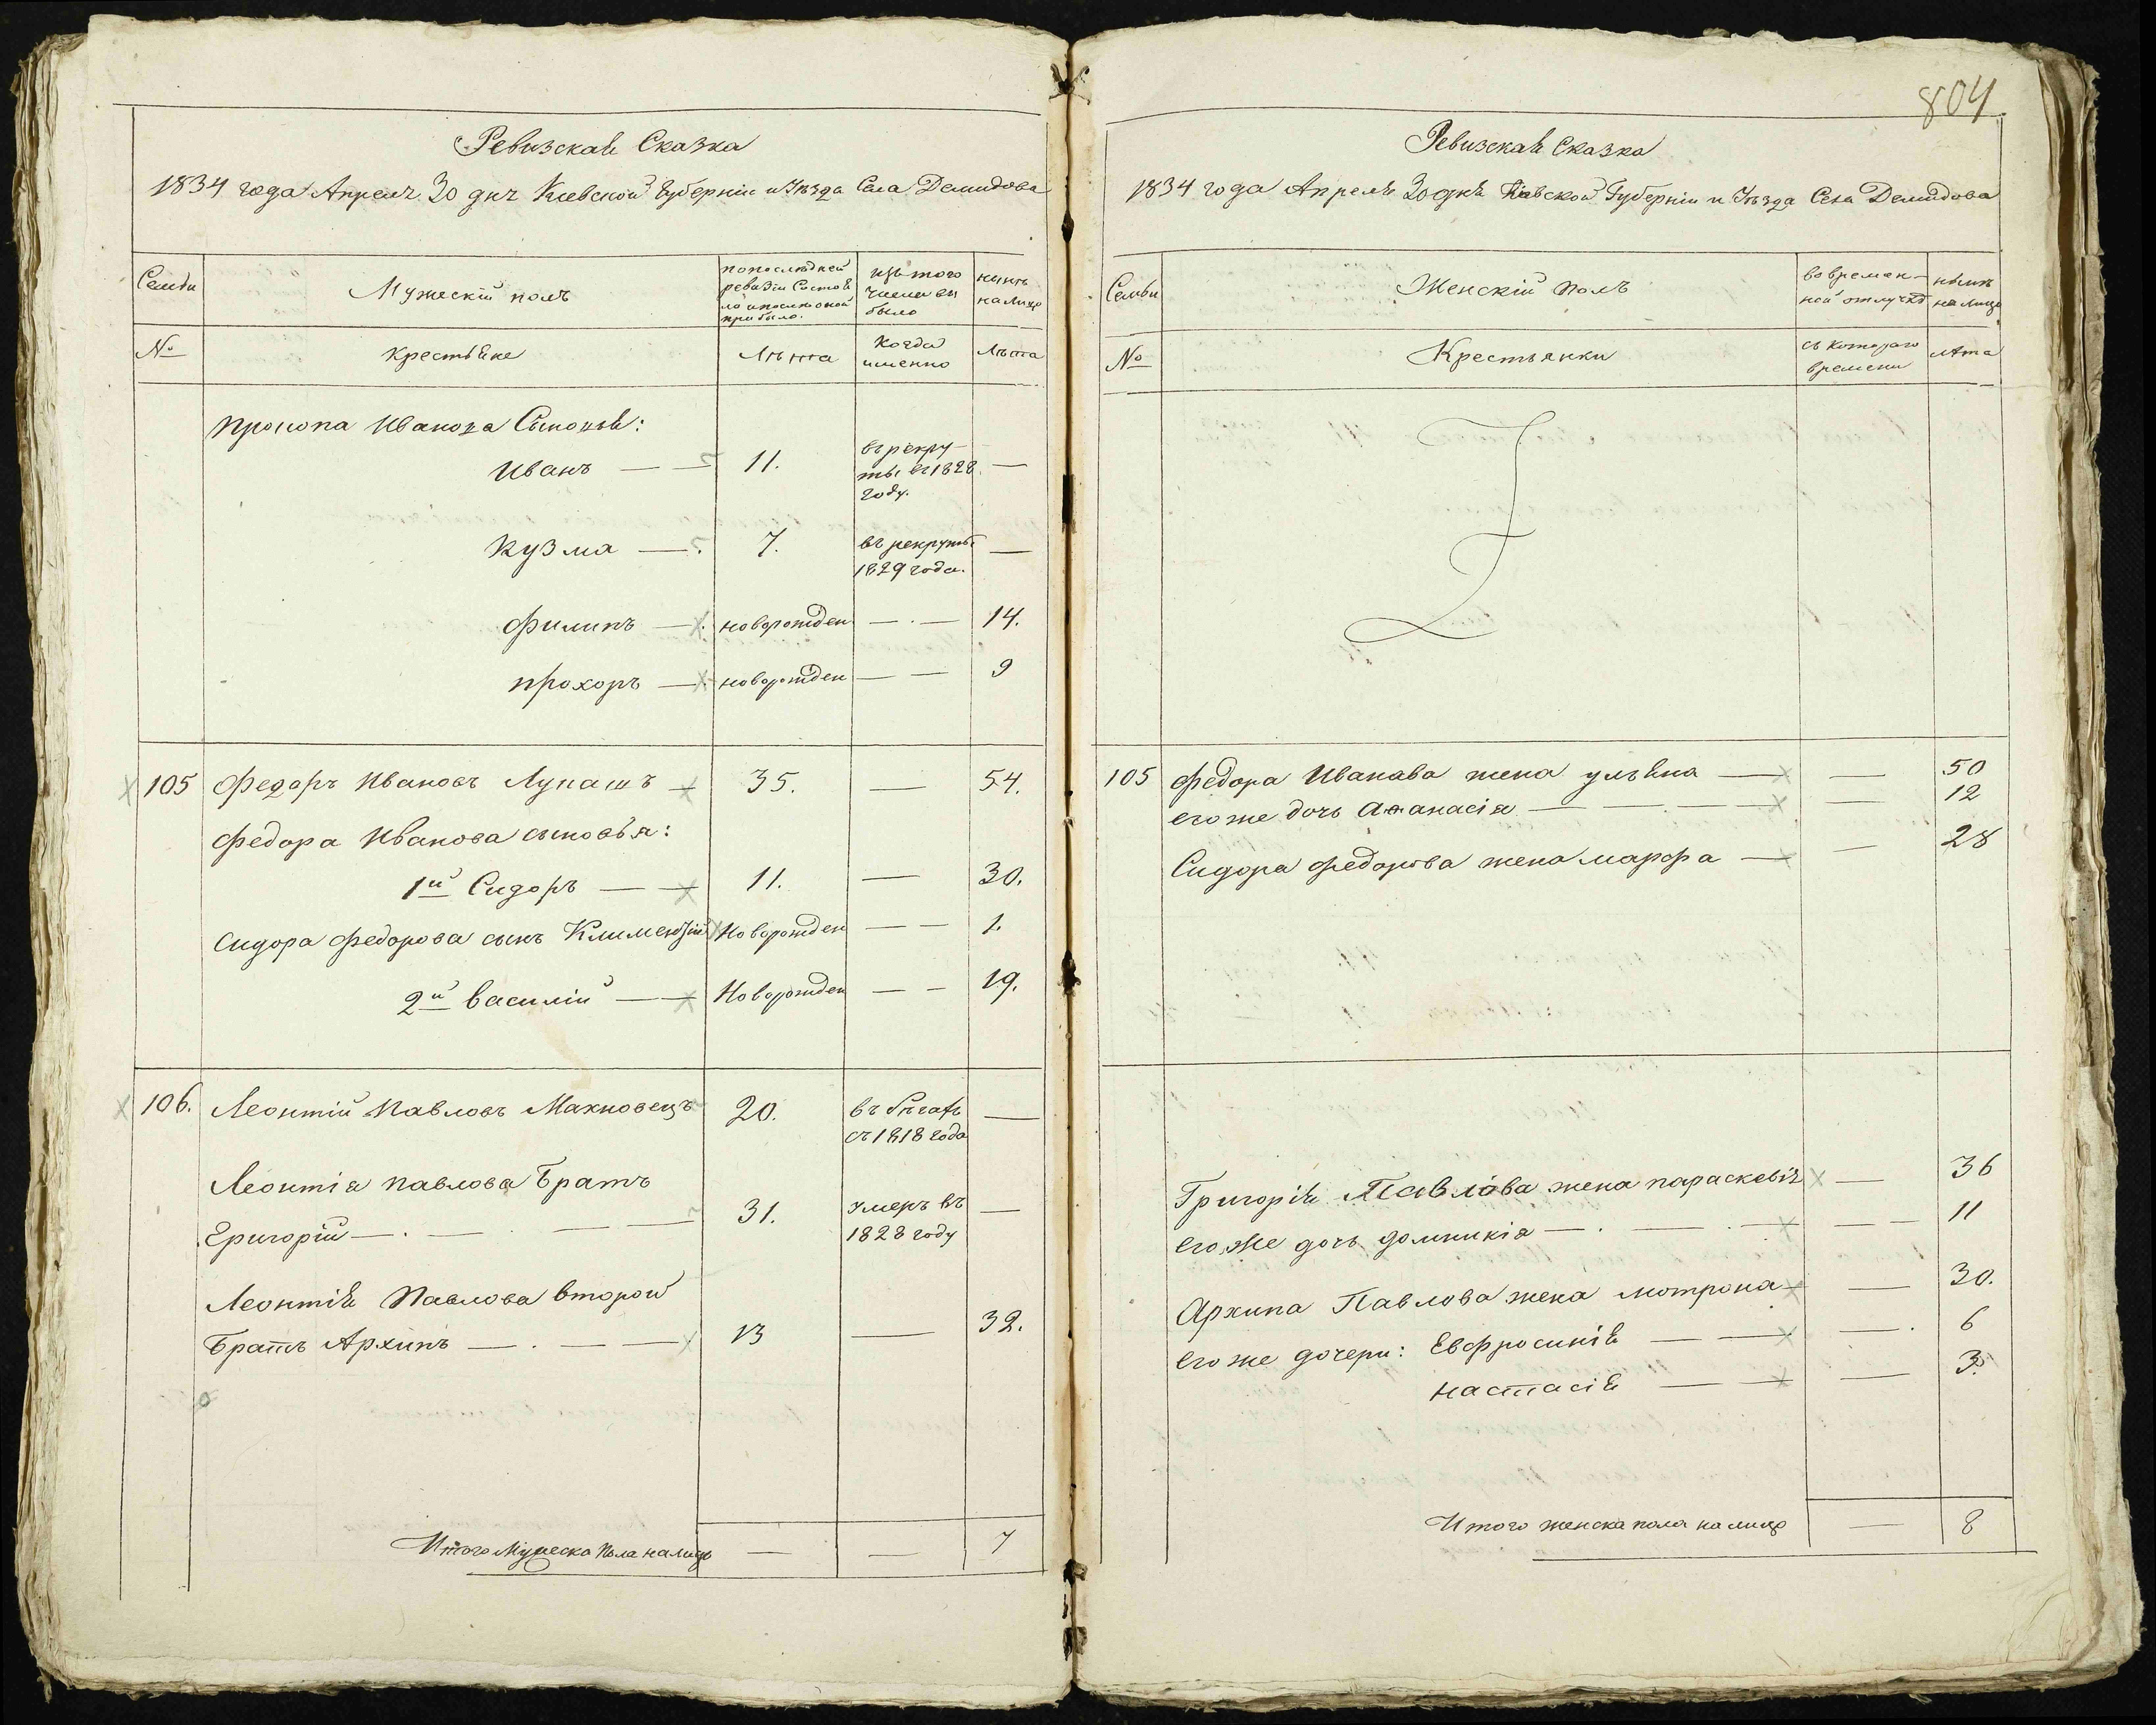 Ревизская Сказка
1834 года Апреля 30 дня Киевской Губерніи и Уѣзда Села Демидова
Семьи
Мужескій полъ
по последней ревизіи Состоя ло и послѣ оной прибыло.
изъ того числа вы было
нынѣ на лицо
№
крестьяне
Лѣта
Когда именно
Лѣта
Прокопа Иванова Сыновья:
Иванъ — — 11. въ рекру ты въ 1828 году. —
Кузма — 7. въ рекруты 1829 года. —
Филипъ — новорожден — . — 14.
прохоръ — новорожден — — 9
105 Федоръ Ивановъ Лупашъ — 35. — 54.
Федора Иванова сыновья:
1й Сидоръ — — 11. — 30.
Сидора Федорова сынъ Климентій Новорожден — — 1.
2й Василій — — Новорожден — — 19.
106. Леонтій Павловъ Махновецъ 20. въ бѣгахъ съ 1818 года —
Леонтія Павлова Братъ
Григорій — . — — — 31. умеръ въ 1828 году —
Леонтія Павлова второй
Братъ Архипъ — . — — 13 — 32.
Итого Мужеска Пола налицо — — 7
804
Ревизская Сказка
1834 года Апреля 30 дня Кіевской Губерніи и Уѣзда Села Демидова
Семьи
Женскій полъ
во времен- ной отлучкѣ
нынѣ на лицо
№
Крестьянки
съ котораго времени
лѣта
105 Федора Иванава жена ульяна — — 50
его же дочь Афанасія — — . — — 12
Сидора Федорова жена марфа — — 28
Григорія Павлова жена параскевія — 36
его же дочь домникія — . — . — — — 11
Архипа Павлова жена мотрона — — 30.
его же дочери: Евфросинія — — — . 6
настасія — — — 3.
Итого женска пола на лицо — 8